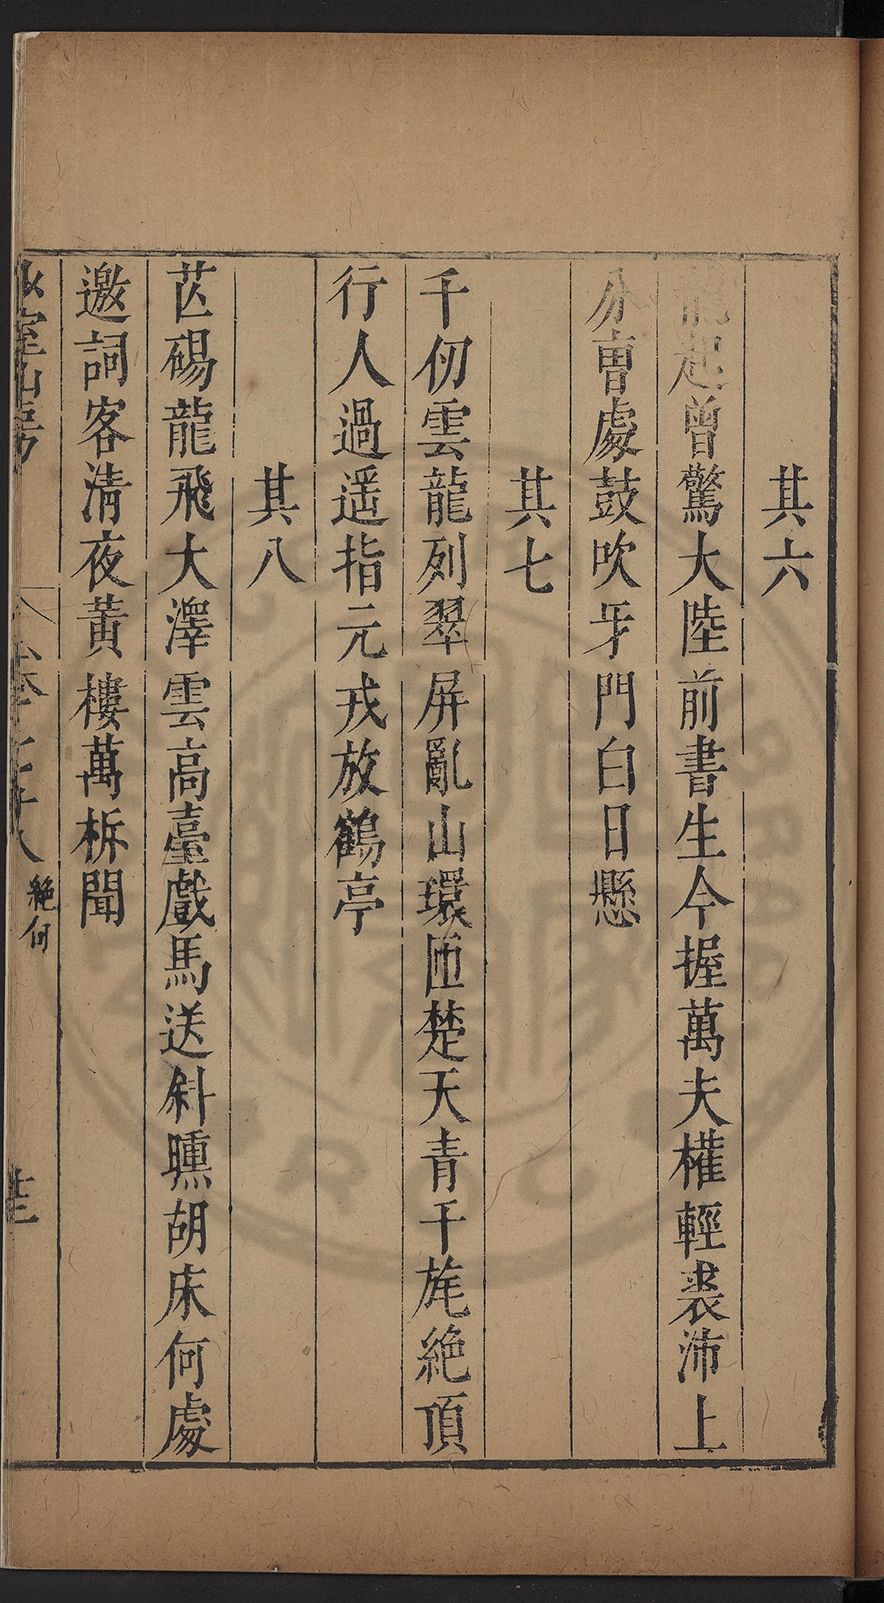 其六
龍起曾驚大陸前書生今握萬夫權輕裘沛上
分曹處鼓吹牙門白日懸
其七
千仞雲龍列翠屏亂山環匝楚天青干旄絶頂
行人過遥指元戎放鶴亭
其八
芒碭龍飛大澤雲高臺戲馬送斜曛胡床何處
邀詞客清夜黄樓萬柝聞
少室山房
卷七十八
絶句